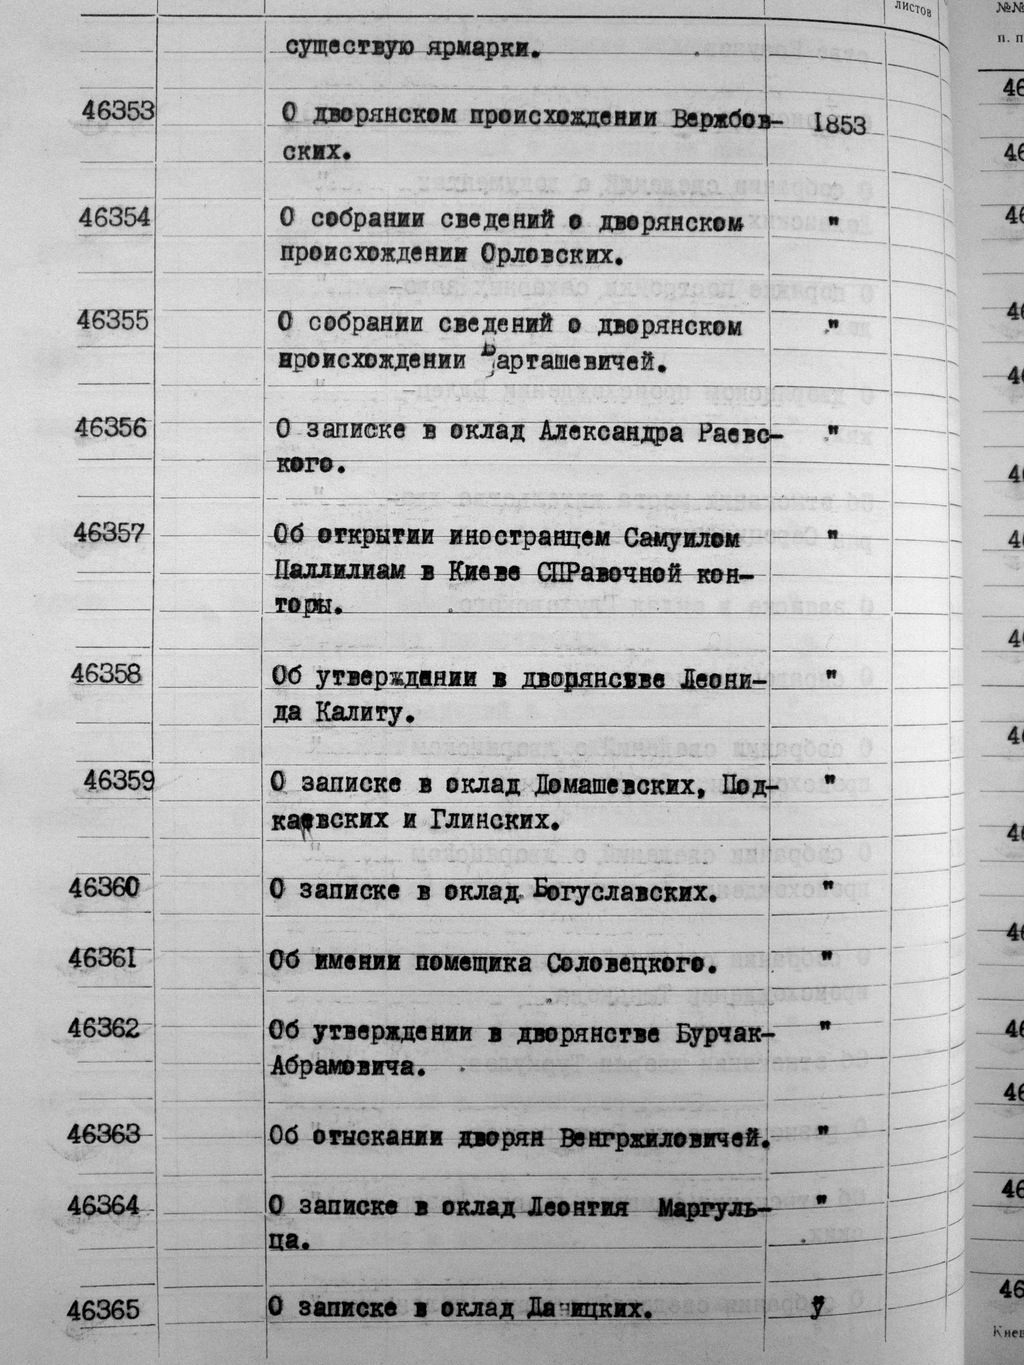 листов
№№
п. п
существую ярмарки.
46353 О дворянском происхождении Вержбов- 1853
ских.
46354 О собрании сведений о дворянском "
происхождении Орловских.
46355 О собрании сведений о дворянском "
происхождении Барташевичей.
46356 О записке в оклад Александра Раевс- "
кого.
46357 Об открытии иностранцем Самуилом "
Паллилиам в Киеве СПРавочной кон-
торы.
46358 Об утверждении в дворянстве Леони- "
да Калиту.
46359 О записке в оклад Домашевских, Под- "
каевских и Глинских.
46360 О записке в оклад Богуславских. "
46361 Об имении помещика Соловецкого. "
46362 Об утверждении в дворянстве Бурчак- "
Абрамовича.
46363 Об отыскании дворян Венгржиловичей. "
46364 О записке в оклад Леонтия Маргуль- "
ца.
46365 О записке в оклад